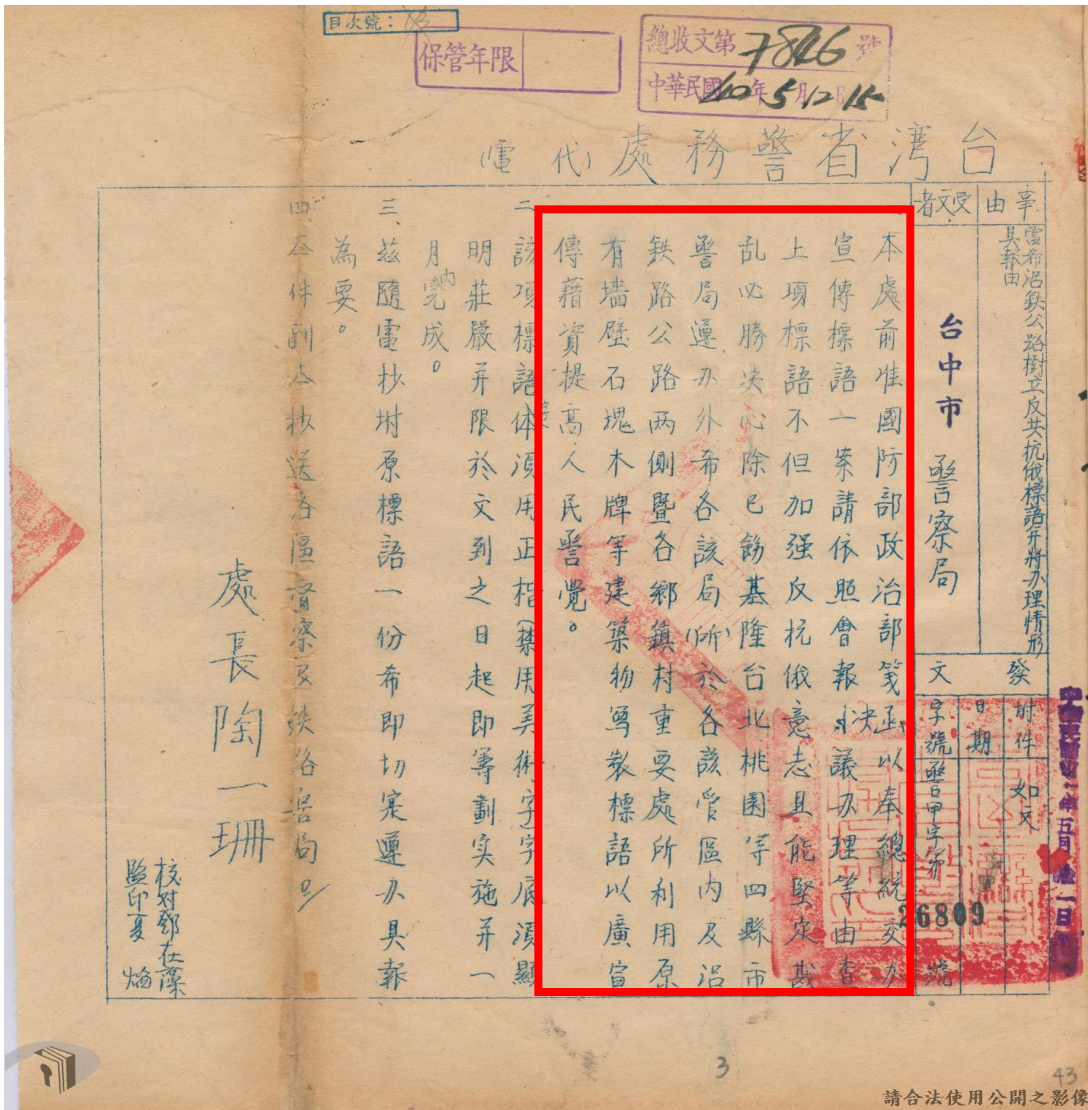 目次號：
保管年限
總收文第7846號
中華民國40年5月12日15
台灣省警務處(代電)
事由
雷希沿鉄公路樹立反共抗俄標語并將办理情形
具報由
受文者
台中市 警察局
發文
附件 如文
日期
字號 警甲字第26809號
本處前准國防部政治部箋函以奉總統交办
宣傳標語一案請依照會報決議办理等由查
上項標語不但加强反抗俄意志且能堅定戡
乱必勝决心除已飭基隆台北桃園等四縣市
警局遵办外希各該局(所)於各該管區内及沿
鉄路公路两側暨各鄉鎮村重要處所利用原
有墻壁石塊木牌等建築物寫製標語以廣宣
傳藉資提高人民警覺。
二、該項標語字体須用正楷(禁用美術字)字底須顯
明莊嚴并限於文到之日起即筹劃实施并一
月内完成。
三、兹隨電抄坿原標語一份希即切实遵办具報
為要。
四、本件副本抄送各區督察及鉄路警局
處長陶一珊
校对鄧在藻
監印夏焔
3
43
請合法使用公開之影像